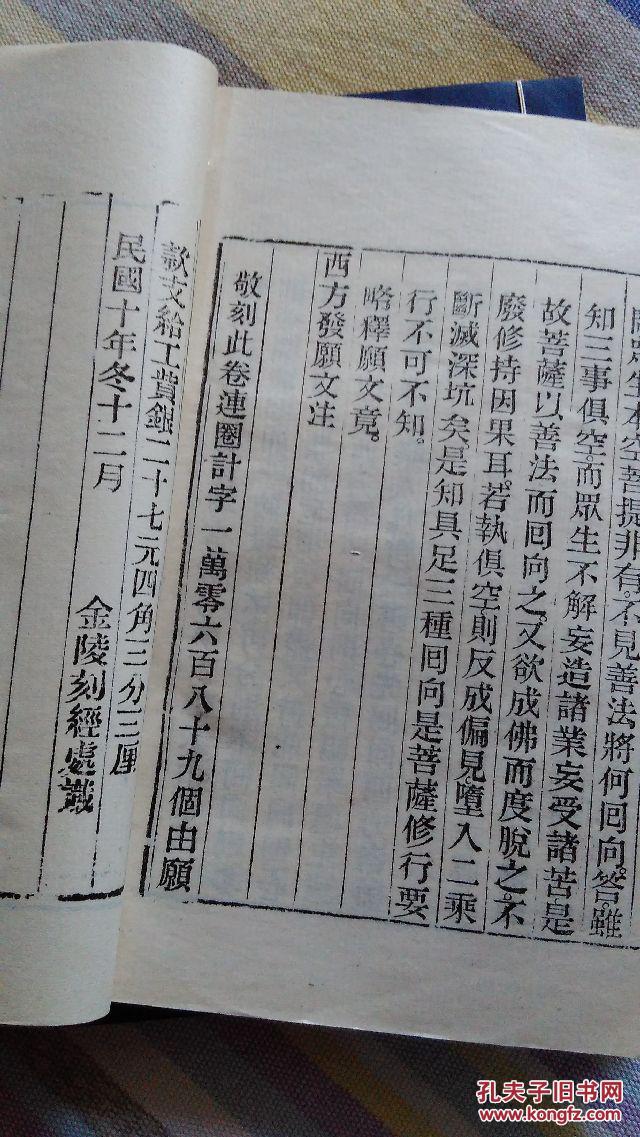 本空菩提非有。不見善法將何回向。答。雖
知三事俱空而眾生不解妄造諸業妄受諸苦是
故菩薩以善法而回向之。又欲成佛而度脫之。不
廢修持因果耳。若執俱空則反成偏見墮入二乘
斷滅深坑矣是知具足三種回向是菩薩修行要
行不可不知。
略釋願文竟。
西方發願文注
敬刻此卷連圈計字一萬零六百八十九個由願
款支給工費銀二十七元四角三分三厘
民國十年冬十二月　金陵刻經處識
孔夫子旧书网
www.kongfz.com